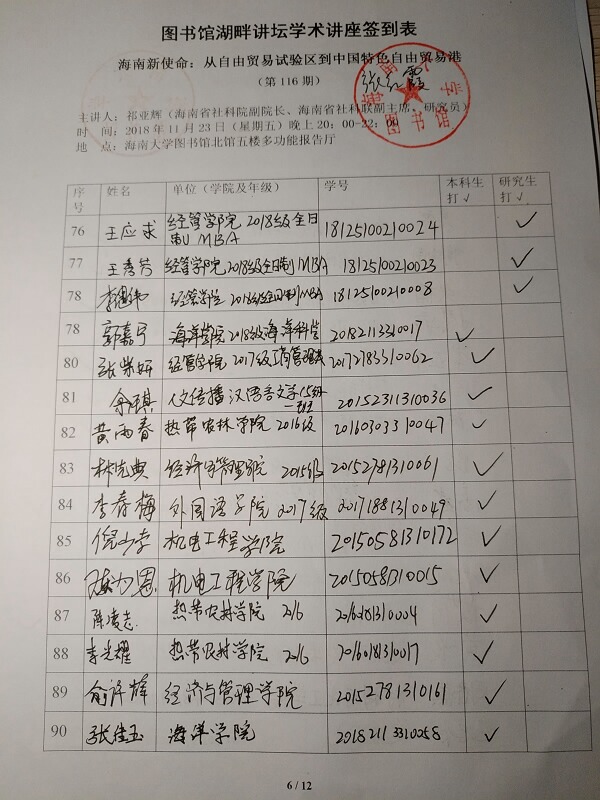 图书馆湖畔讲坛学术讲座签到表
海南新使命：从自由贸易试验区到中国特色自由贸易港
（第 116 期）
张红霞
图书馆
主讲人：祁亚辉（海南省社科院副院长、海南省社科联副主席、研究员）
时 间：2018 年 11 月 23 日（星期五）晚上 20：00-22：00
地 点：海南大学图书馆北馆五楼多功能报告厅
序号 姓名 单位（学院及年级） 学号 本科生打√ 研究生打√
76 王应求 经管学院 2018级全日制 MBA 18125100210024 √
77 王秀芳 经管学院2018级全日制MBA 18125100210023 √
78 经管学院2018级全日制MBA 18125100210008 √
78 郭嘉宁 海洋学院2018级海洋科学 20182113310017 √
80 张荣妍 经管学院2017级工商管理类 20172783310062 √
81 人文传播汉语言文学15级一班 20152311310036 √
82 黄雨春 热带农林学院2016级 20160303310047 √
83 林克典 经济与管理学院 2015级 20152781310061 √
84 李春梅 外国语学院 2017级 20171881310049 √
85 倪 机电工程学院 20150581310172 √
86 机电工程学院 20150581310015 √
87 陈凌志 热带农林学院 2016 20160181310004 √
88 李光耀 热带农林学院 2016 20160181310017 √
89 俞泽辉 经济与管理学院 20152781310161 √
90 张佳玉 海洋学院 20182113310058 √
6 / 12